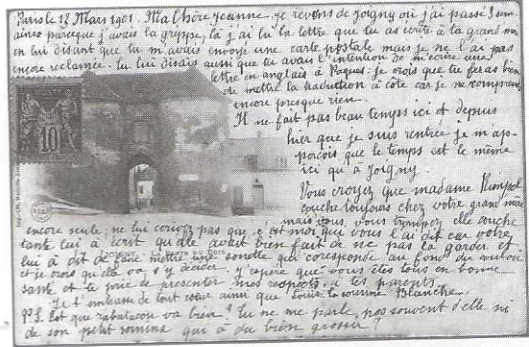 Paris le 12 Mars 1901. Ma chère Jeanne. Je reviens de Joigny où j'ai passé 3 sem
aines parceque j'avais la gryppe, là j'ai lu la lettre que tu as écrite à ta grand mère
en lui disant que tu m'avais envoyé une carte postale mais je ne l'ai pas
encore reclamée. tu lui disais aussi que tu avais l'intention de m'écrire une
lettre en anglais à Paques. je crois que tu feras bien
de mettre la traduction à côte car je ne comprends
encore presque rien.
Il ne fait pas beau temps ici et depuis
hier que je suis rentrée je m'ap-
perçois que le temps est le même
ici qu'à Joigny.
Vous croyez que madame
couche toujours chez votre grand mère
mais vous vous trompez elle couche
encore seule; ne lui pas que c'est moi qui vous l'ai dit car votre
tante lui a écrit qu'elle avait bien fait de ne pas la garder et
lui a dit de faire mettre une sonette qui corresponde au fond du
et je crois qu'elle va s'y décider. j'epère que vous êtes tous en bonne
santé et te prie de presenter mes respects à tes parents.
Je t'embrasse de tout cœur ainsi que Louis ta cousine Blanche.
P.S. Est que va bien? Tu ne me parle pas souvent d'elle ni
de son petit qui a du bien grossir?
10